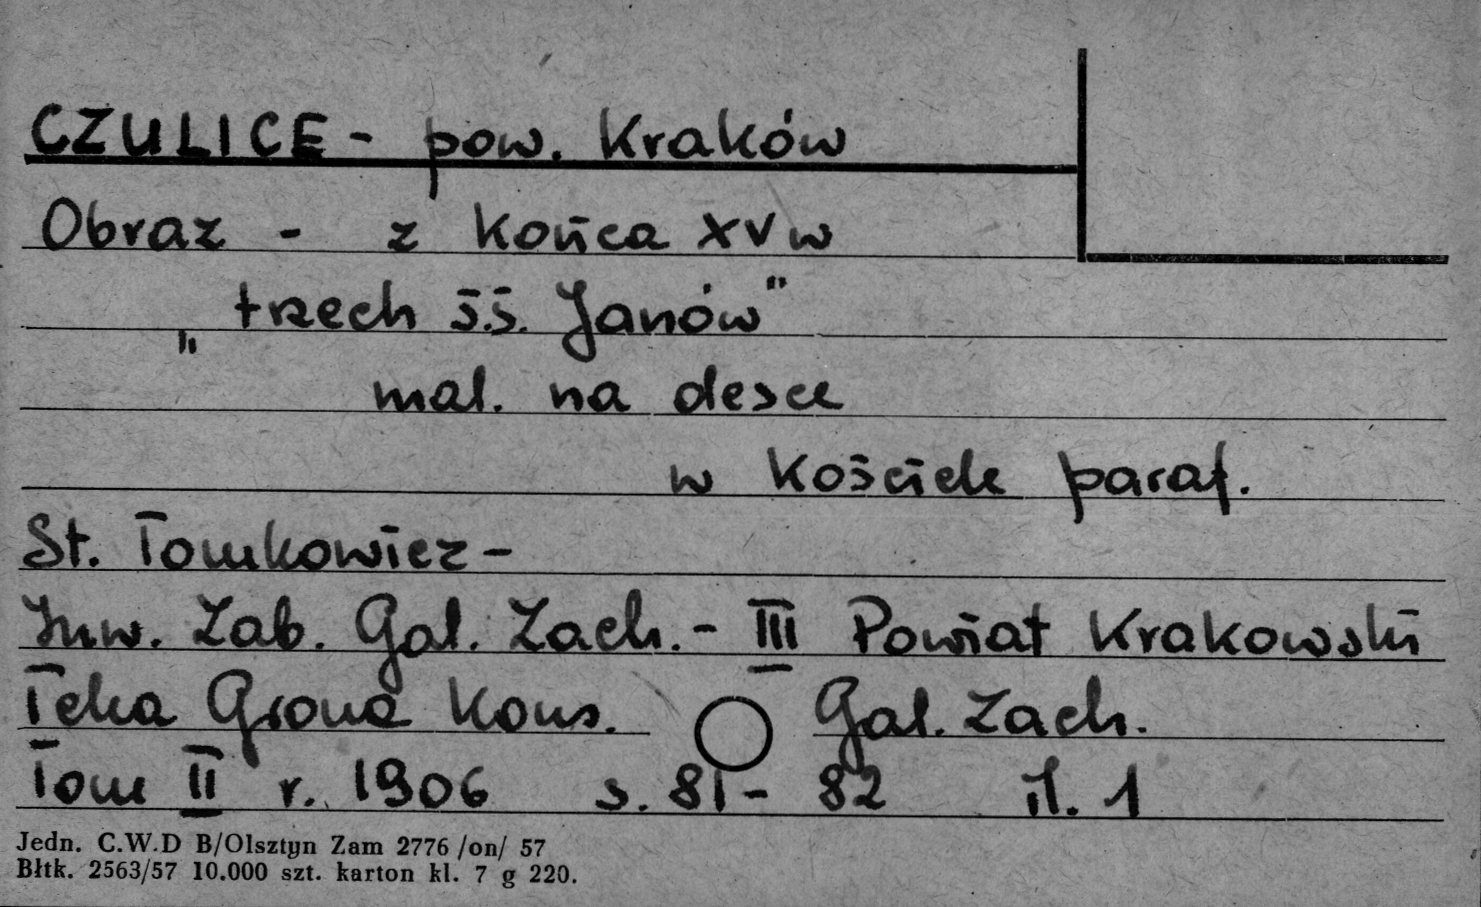 CZULICE - pow. Kraków
Obraz - z końca XV w
„trzech ś.ś. Janów”
mal. na desce
w kościele paraf.
St. Tomkowicz -
Inw. Zab. Gal. Zach. - III Powiat Krakowski
Teka Grona Kons. Gal. Zach.
Tom II r. 1906 s. 81 - 82 il. 1
Jedn. C.W.D B/Olsztyn Zam 2776 /on/ 57
Błtk. 2563/57 10.000 szt. karton kl. 7 g 220.